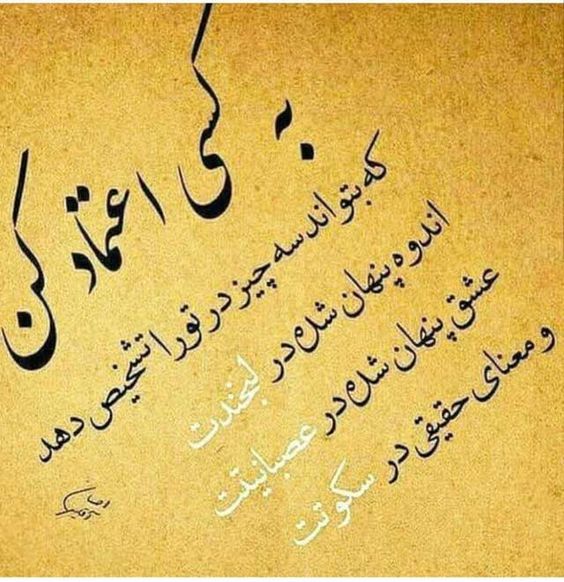 به کسی اعتماد کن
که بتواند سه چیز در تو را تشخیص دهد
اندوه پنهان شده در لبخندت
عشق پنهان شده در عصبانیتت
و معنای حقیقی در سکوتت